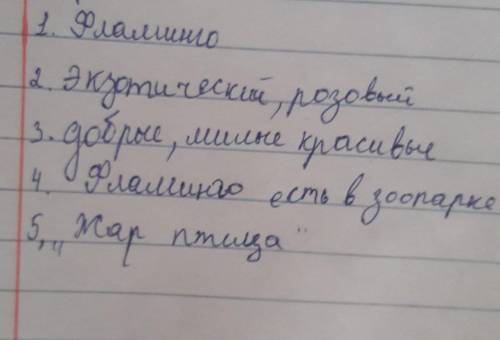 1. Фламинго
2. Экзотический, розовый
3. добрые, милые красивые
4. Фламинго есть в зоопарке
5, „Жар птица"